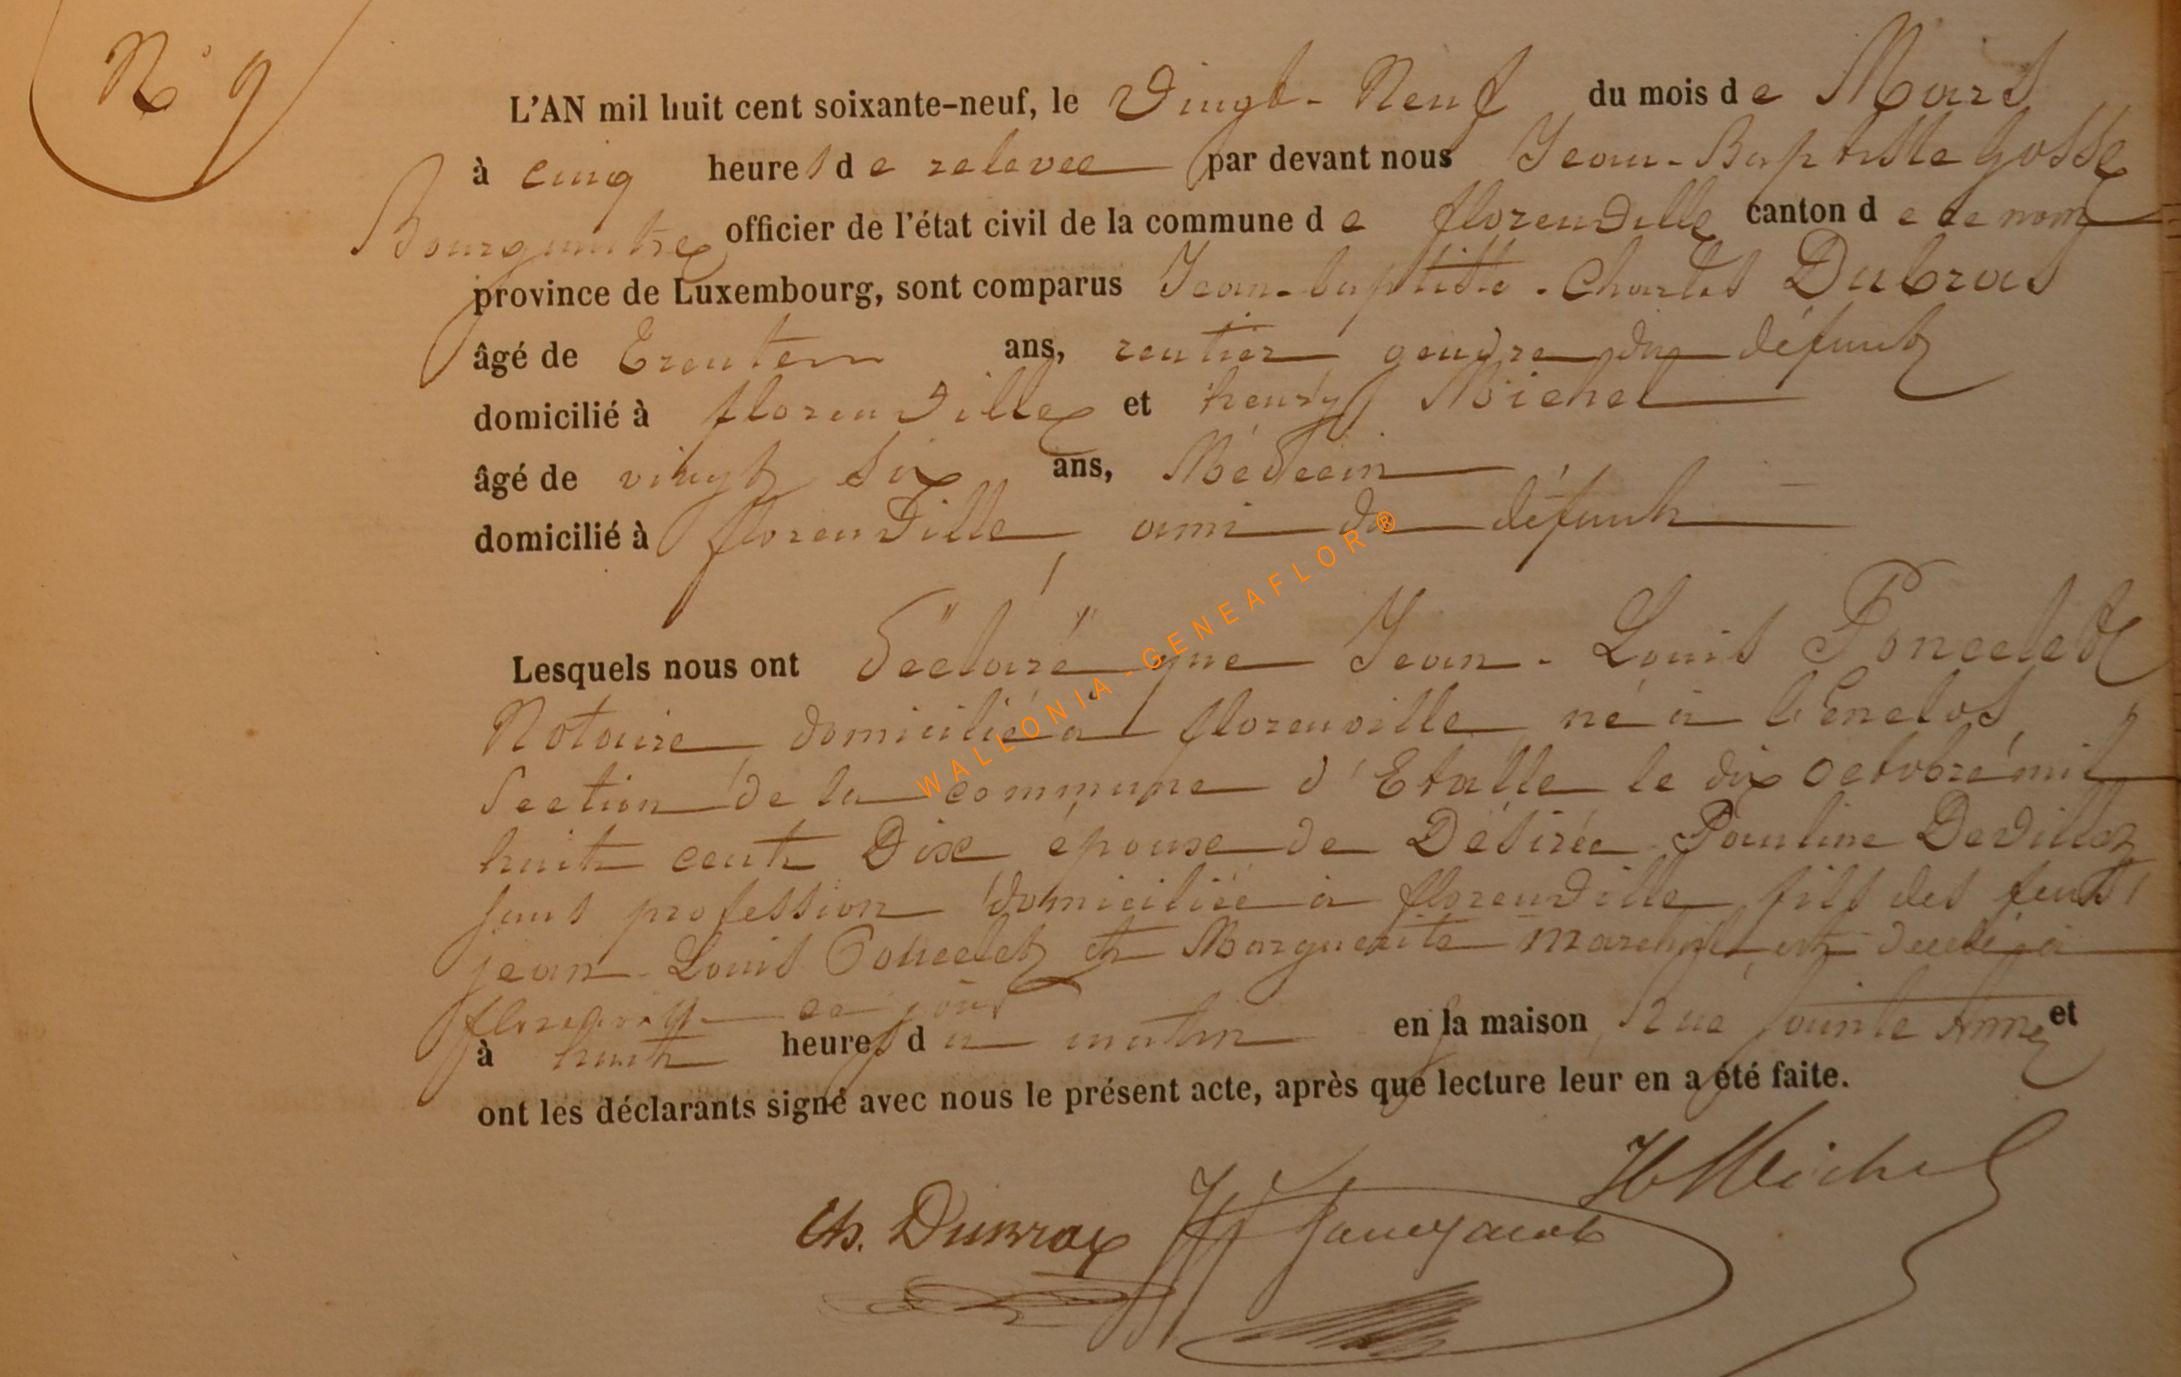 N° 9
L'AN mil huit cent soixante-neuf, le Vingt-Neuf du mois de Mars
à cinq heures de relevée par devant nous Jean-Baptiste Gosse
Bourgmestre officier de l'état civil de la commune de florenville canton de ce nom
province de Luxembourg, sont comparus Jean-baptiste-Charles Dubras
âgé de ans, rentier gendre du défunt
domicilié à florenville et henry Michel
âgé de vingt six ans, Médecin
domicilié à florenville, ami du défunt
Lesquels nous ont déclaré que Jean-Louis Poncelet
Notaire domicilié à florenville né à l'Enclos,
Section de la commune d'Etalle le dix octobre mil
huit cent Dix épouse de Désirée Pauline Devillez
sans profession domiciliée à florenville fils des feus
jean-Louis Poncelet et Marguerite est décédé à
florenville ce jour
à huit heures du matin en la maison Rue Sainte Anne et
ont les déclarants signé avec nous le présent acte, après que lecture leur en a été faite.
H Michel
Ch. Dubray
WALLONIA-GENEAFLOR®